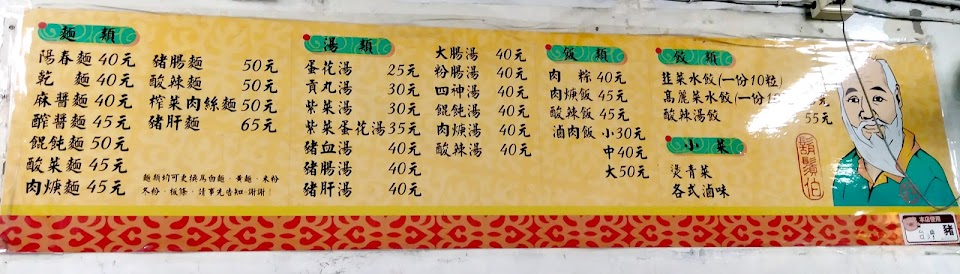 麵類
陽春麵 40元
乾麵 40元
麻醬麵 40元
酢醬麵 45元
餛飩麵 50元
酸菜麵 45元
肉焿麵 45元
豬腸麵 50元
酸辣麵 50元
榨菜肉絲麵 50元
豬肝麵 65元
麵類均可更換為白麵、黃麵、米粉
冬粉、板條、請事先告知,謝謝!
湯類
蛋花湯 25元
貢丸湯 30元
紫菜湯 30元
紫菜蛋花湯 35元
豬血湯 40元
豬腸湯 40元
豬肝湯 40元
大腸湯 40元
粉腸湯 40元
四神湯 40元
餛飩湯 40元
肉焿湯 40元
酸辣湯 40元
飯類
肉粽 40元
肉焿飯 45元
酸辣飯 45元
滷肉飯 小30元
中40元
大50元
餃類
韭菜水餃(一份10粒)
高麗菜水餃(一份
酸辣湯餃 55元
小菜
燙青菜
各式滷味
鬍鬚伯
本店使用
豬